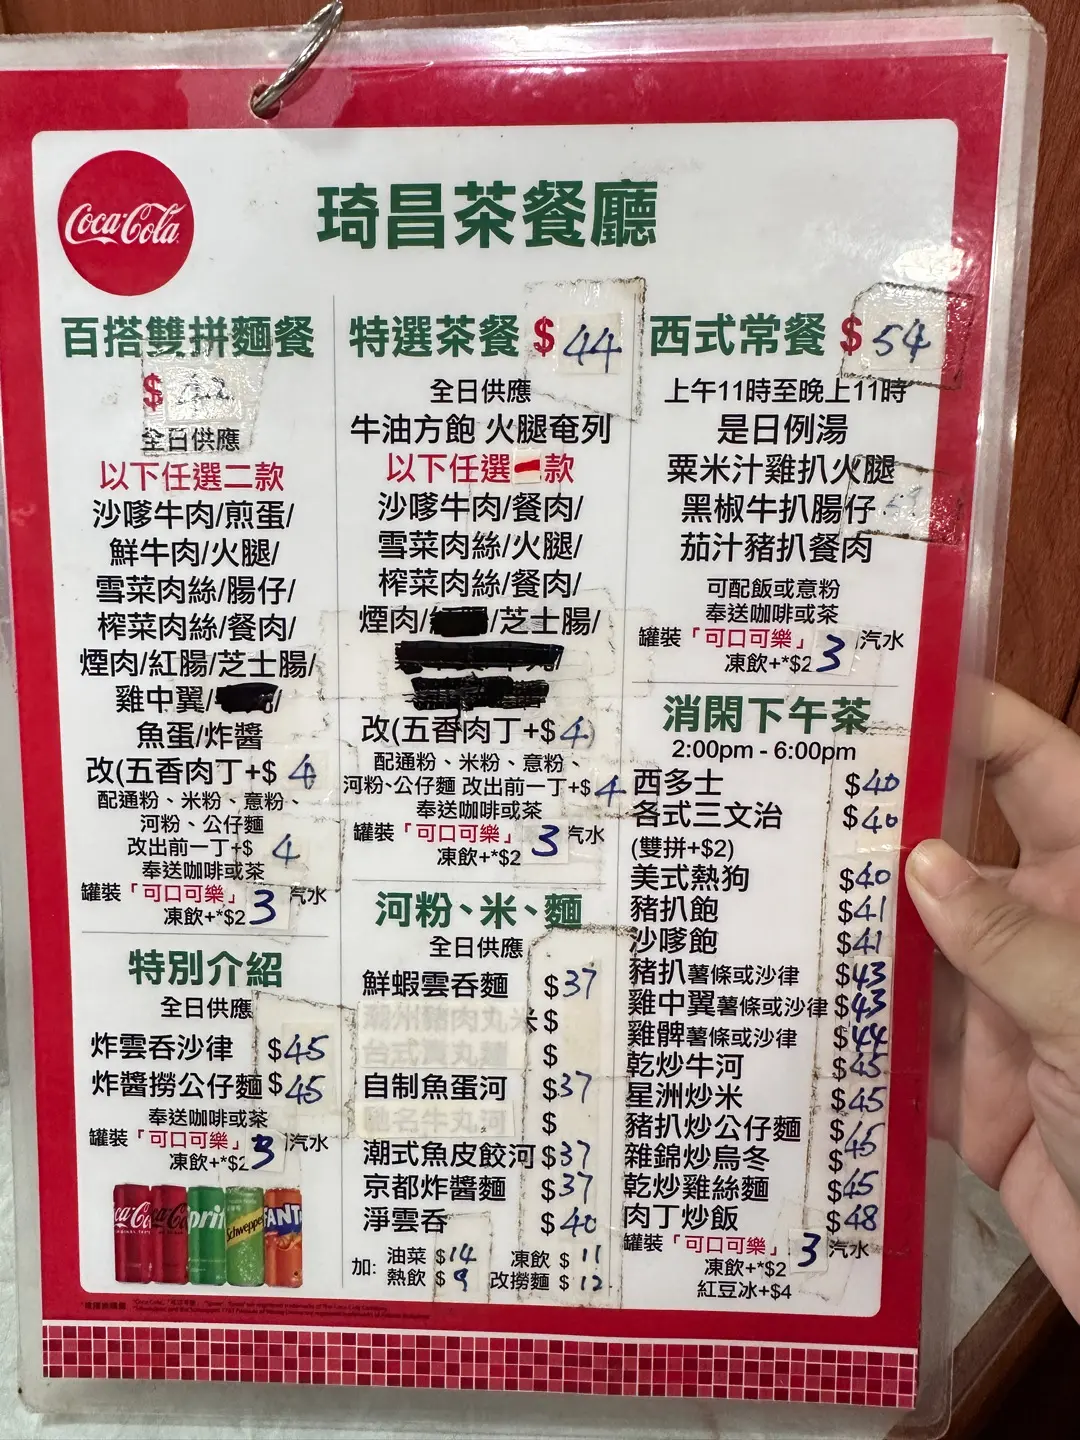 Coca-Cola
琦昌茶餐廳
百搭雙拼麵餐
$
全日供應
以下任選二款
沙嗲牛肉/煎蛋/
鮮牛肉/火腿/
雪菜肉絲/腸仔/
榨菜肉絲/餐肉/
煙肉/紅腸/芝士腸/
雞中翼/
魚蛋/炸醬
改(五香肉丁+$ 4
配通粉、米粉、意粉、
河粉、公仔麵
改出前一丁+$ 4
奉送咖啡或茶
罐裝「可口可樂」 汽水
凍飲+*$2 3
特別介紹
全日供應
炸雲吞沙律 $45
炸醬撈公仔麵 $45
奉送咖啡或茶
罐裝「可口可樂」 汽水
凍飲+*$2 3
特選茶餐 $44
全日供應
牛油方飽 火腿奄列
以下任選一款
沙嗲牛肉/餐肉/
雪菜肉絲/火腿/
榨菜肉絲/餐肉/
煙肉/ /芝士腸/
改(五香肉丁+$4)
配通粉、米粉、意粉、
河粉、公仔麵 改出前一丁+$4
奉送咖啡或茶
罐裝「可口可樂」 汽水
凍飲+*$2 3
河粉、米、麵
全日供應
鮮蝦雲吞麵 $37
潮州豬肉丸米 $
$
自制魚蛋河 $37
馳名牛丸河 $
潮式魚皮餃河 $37
京都炸醬麵 $37
淨雲吞 $40
加: 油菜 $14 凍飲 $11
熱飲 $9 改撈麵 $12
西式常餐 $54
上午11時至晚上11時
是日例湯
粟米汁雞扒火腿
黑椒牛扒腸仔
茄汁豬扒餐肉
可配飯或意粉
奉送咖啡或茶
罐裝「可口可樂」 汽水
凍飲+*$2 3
消閑下午茶
2:00pm - 6:00pm
西多士 $40
各式三文治 $40
(雙拼+$2)
美式熱狗 $40
豬扒飽 $41
沙嗲飽 $41
豬扒薯條或沙律 $43
雞中翼薯條或沙律 $43
雞髀薯條或沙律 $44
乾炒牛河 $45
星洲炒米 $45
豬扒炒公仔麵 $45
雜錦炒烏冬 $
乾炒雞絲麵 $45
肉丁炒飯 $48
罐裝「可口可樂」 汽水
凍飲+*$2 3
紅豆冰+$4
Schweppes